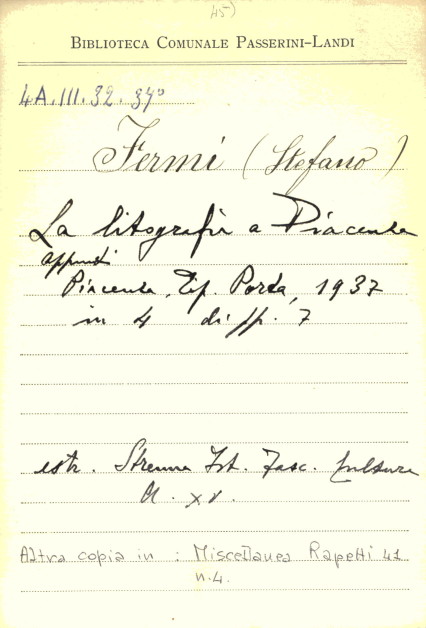 45)
BIBLIOTECA COMUNALE PASSERINI-LANDI
4A.III.32.37°
Fermi (Stefano)
La litografia a Piacenza
appunti
Piacenza, Tip. Porta, 1937
in 4 di pp. 7
estr. Strenna Ist. Fasc. Cultura
A. XV.
Altra copia in : Miscellanea Rapetti 41
n.4.